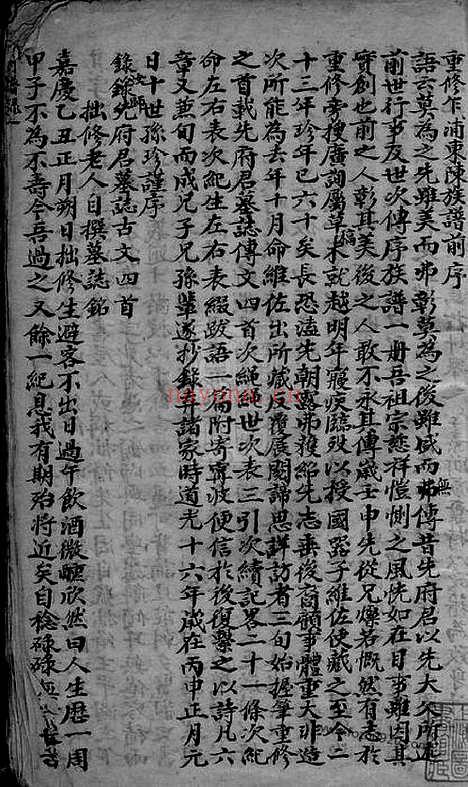 重修乍浦東陳族譜前序
語云莫為之先雖美而弗彰莫為之後雖盛而弗傳昔先府君以先大父所述
前世行事及世次傳序族譜一冊吾祖宗慈祥愷惻之風恍如在目事雖因其
實創也前之人彰其美後之人敢不承其傳歲壬申先從兄爍若慨然有志於
重修旁搜廣詢屬草未就越明年寢疾臨歿以授國器子維佐使藏之至今二
十三年珍年已六十矣長恐溘先朝露弗獲紹先志垂後裔顧事體重大非造
次所能為去年十月命維佐出所藏反覆展閱諦思詳訪者三旬始握筆重修
之首載先府君墓誌傳文四首次綿世次表三引次續記畧二十一條次紀
命左右表次紀生左右表綴跋語一簡附寄寧波便信於後復繫之以詩凡六
章又兼旬而成兄子兄孫輩遂抄錄弆諸家時道光十六年歲在丙申正月元
日十世孫珍謹序
錄先府君墓誌古文四首
拙修老人自撰墓誌銘
嘉慶乙丑正月朔日拙修生避客不出日過午飲酒微醺欣然曰人生歷一周
甲子不為不壽今吾過之又餘一紀息我有期殆將近矣自稔碌碌
nayona.cn